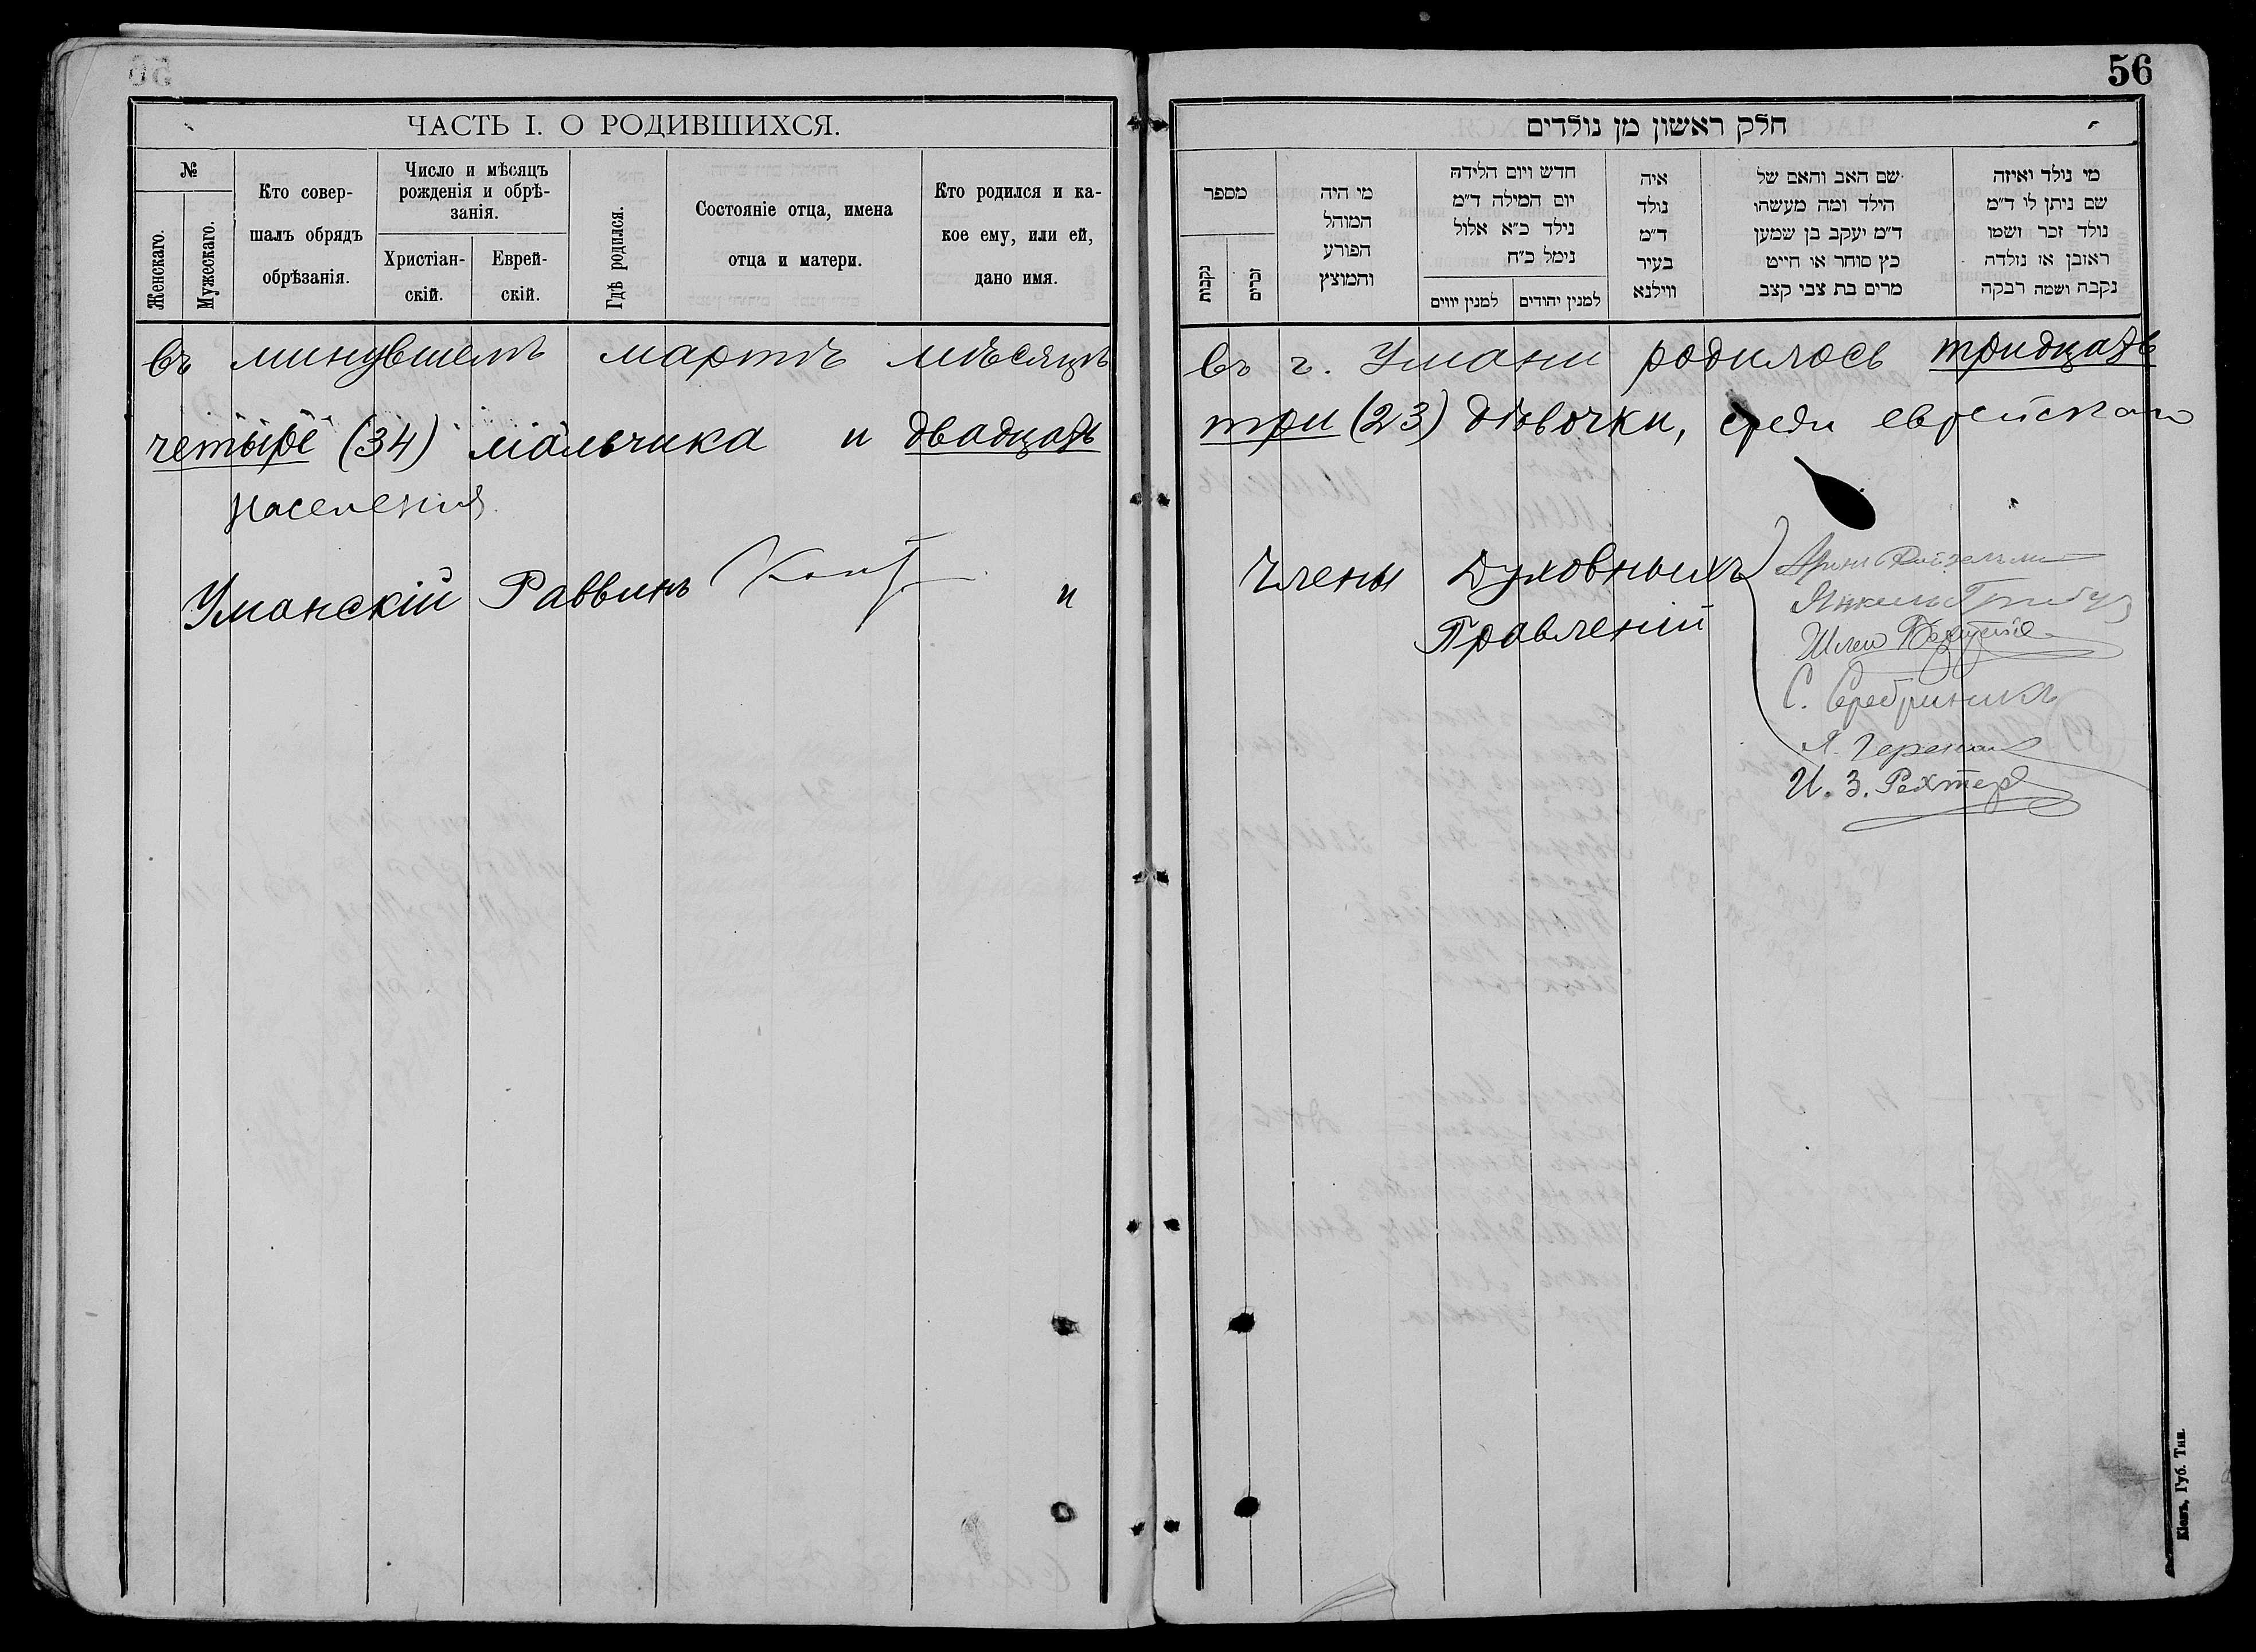 56
ЧАСТЬ I. О РОДИВШИХСЯ.
№
Женскаго.
Мужескаго.
Кто совер-
шалъ обрядъ
обрѣзанія.
Число и мѣсяцъ
рожденія и обрѣ-
занія.
Христіан-
скій.
Еврей-
скій.
Гдѣ родился.
Состояніе отца, имена
отца и матери.
Кто родился и ка-
кое ему, или ей,
дано имя.
חלק ראשון מן נולדים
מספר
נקבות
זכרים
מי היה
המוהל
הפורע
והמוצץ
חדש ויום הלידה
יום המילה ד"מ
נילד כ"א אלול
נימל כ"ח
למנין יווים
למנין יהודים
איה
נולד
ד"מ
בעיר
ווילנא
שם האב והאם של
הילד ומה מעשהו
ד"מ יעקב בן שמען
כץ סוחר או חייט
מרים בת צבי קצב
מי נולד ואיזה
שם ניתן לו ד"מ
נולד זכר ושמו
ראובן או נולדה
נקבה ושמה רבקה
въ минувшемъ мартѣ мѣсяцѣ въ г. Умани родилось тридцать
четыре (34) мальчика и двадцать три (23) дѣвочки, среди еврейскаго
населенія.
Уманскій Раввинъ и Члены Духовныхъ
Правленій
Шлема
С. Серебриникъ
И. З. Рехтеръ
Кіевъ, Губ. Тип.